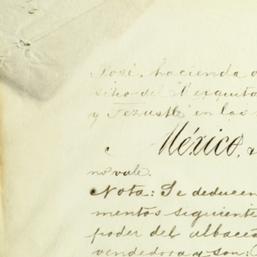 José, hacienda
sitio del Mezquito
y Tezustle en las
México,
no vale.
Nota: Se deducen
mentos siguiente
poder del albacea
vendedora y son: